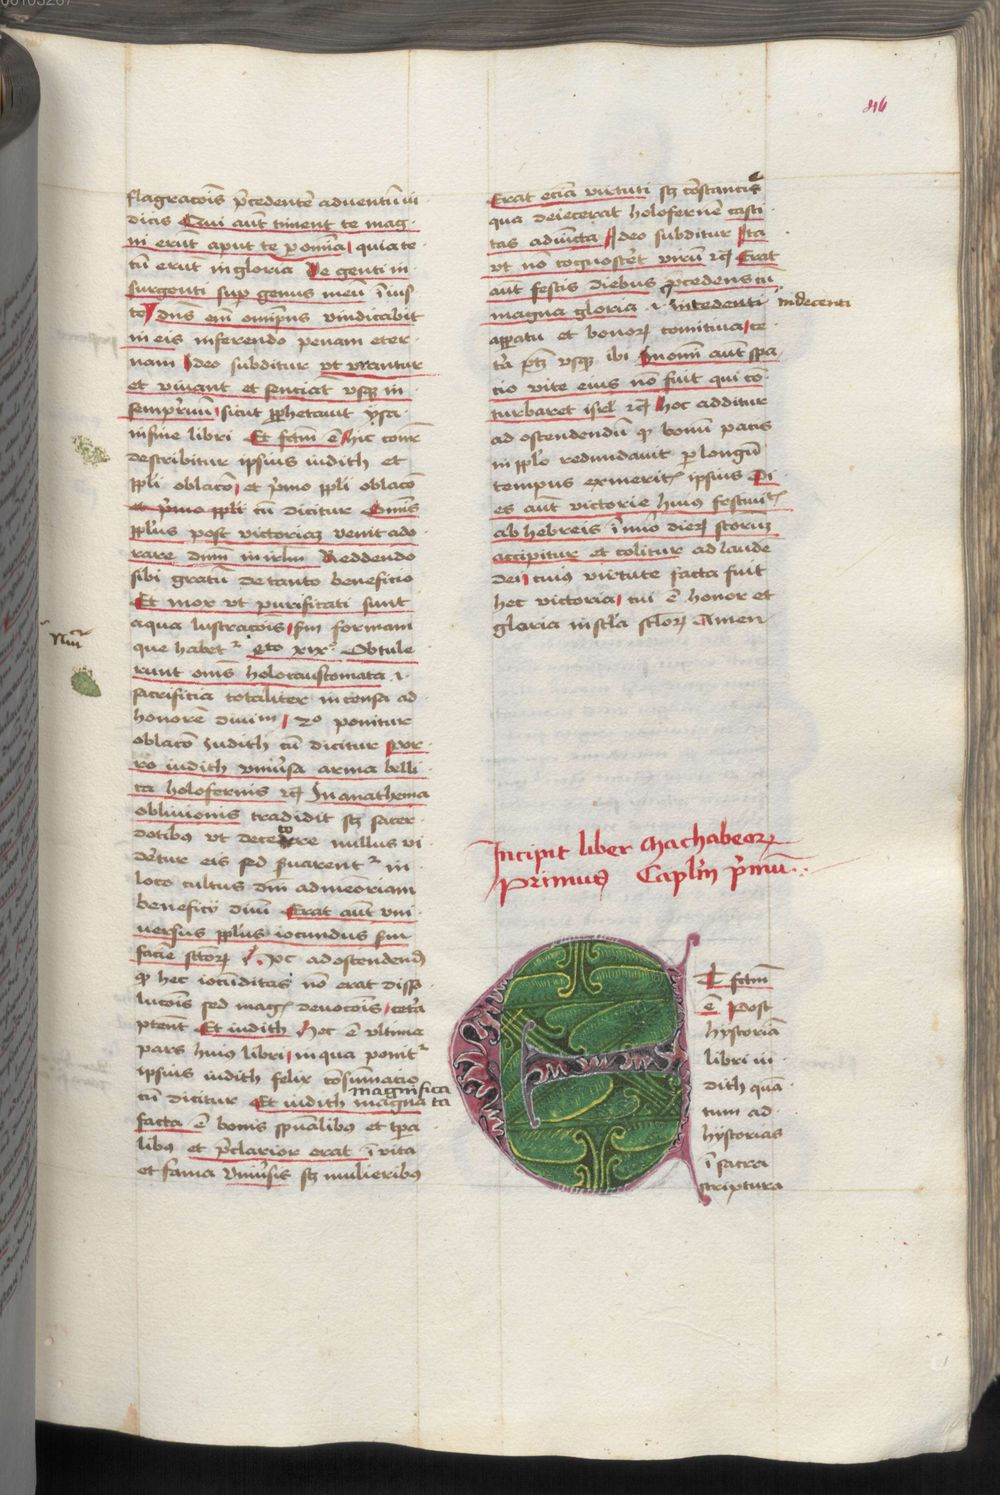 846
flagracoīs p̄cedentē adventū iu
dicis Qui aūt timent te mag
ni erūt aput te p om̄ia quia te
cū erūt in gloria Ve genti in
surgenti sup genus meū ī ius
te dn̄s em̄ om̄ip̄ns vindicabit
in eis inferendo penam eter
nam Ideo subditur vt vrantur
et vivant et senciāt vsqꝫ in
sempr̄nū sicut ꝓphetavit ysa
in fine libri Et fc̄m ē hic
describitur ipsius iudith et
ppli oblacō et p̄mo ppli oblacō
et p̄mo ppli cū dicitur Om̄is
ppl̄us post victoriaꝫ venit ado
rare dnm̄ in irlm̄ Reddendo
sibi gratū de tanto beneficio
Et mox vt purificati sunt
aqua lustracoīs scdm formam
que habetʳ xixͦ Obtule
runt om̄s holocaustomata ·i·
sacrificia totaliter incensa ad
honorē divinū 2ͦ ponitur
oblacō Iudith cū dicitur Por
ro iudith vniūsa arma belli
ca holofernis ⁊cꝫ In anathema
oblivionis tradidit sꝫ sacer
dotibꝰ vt nullus vi
dētur eis sed s̄uarentʳ in
loco cultus dei ad memoriam
beneficij diuī Erat aūt vni
versus ppl̄us iocundus scdm
faciē sc̄torꝫ Hoc ad ostendendū
ꝙ hec iocūditas nō erat disso
lucoīs sed magꝭ devocoīs cetā
ptent Et iudith Hoc ē vltima
pars huiꝰ libri in qua ponitʳ
ipsius iudith felix cōsummatio
magnifica
cū dicitur Et iudith magna ta
facta ē bonis spūalibꝰ et tp̄a
libꝰ et p̄clarior erat ī vita
et fama vniūsis sꝫ mulieribꝰ
Erat eciā virtuti sꝫ cōstancie
qua deiecerat holofernē casti
tas adiūcta Ideo subditur Ita
vt nō cognoscēt virū ⁊cꝫ Erat
aūt festis diebus ꝓcedens cū
magna gloria ·i· intedenti indecenti
apparatu et bonorꝫ comitiva ce
tā ptꝫ vsqꝫ ibi In omī aūt spa
cio vite eius nō fuit qui cō
turbaret isrl̄ ⁊cꝫ Hoc additur
ad ostendendū ꝙ bonū pacis
in pplo redundavit p longū
tempus ex meritꝭ ipsius Di
es aūt victorie huiꝰ festivitꝭ
ab hebreis ī nūo dierꝫ sc̄torum
accipitur et colitur ad laudē
dei cuiꝰ virtute facta fuit
hec victoria cui ē honor et
gloria in sc̄la sc̄lorꝫ Amen
Incipit liber Machabeorꝫ
Primus Caplm̄ p̄mū
E
T fc̄m
ē Post
hystoriā
libri iu
dith quā
tum ad
hystorias
ī sacra
scriptura